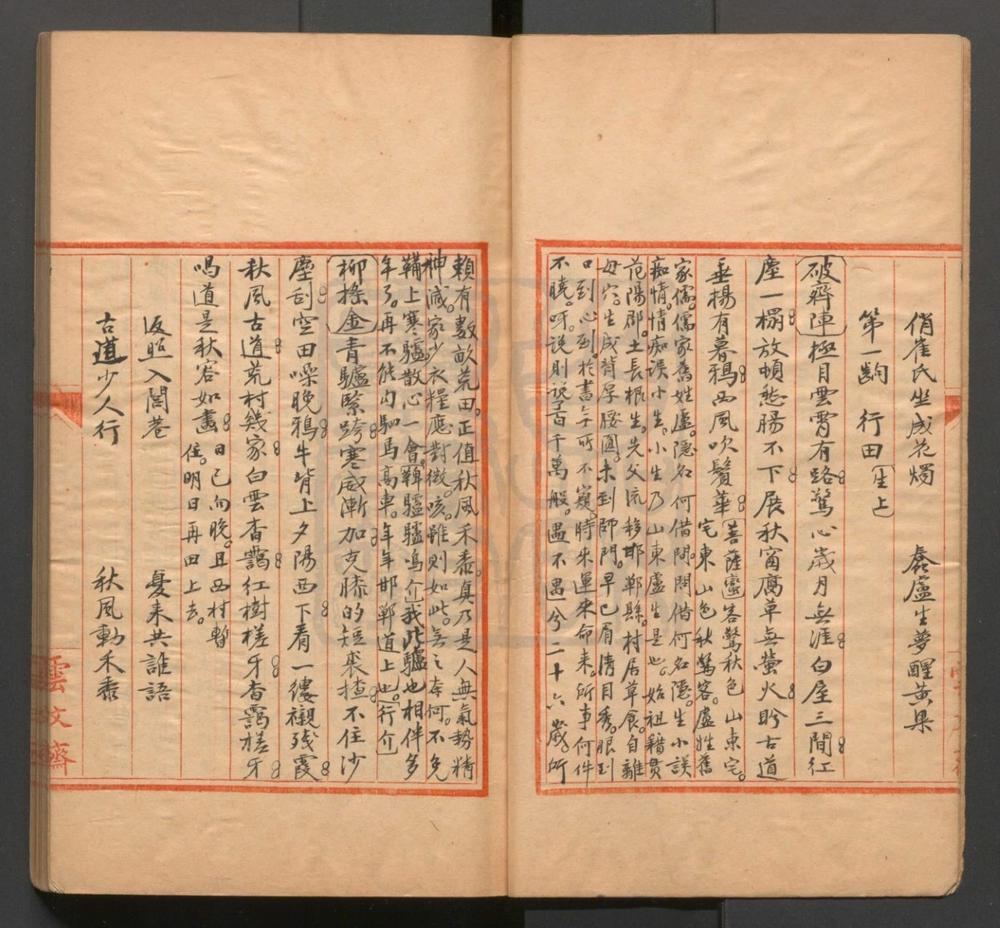 俏崔氏坐成花燭　蠢盧生夢醒黃粱
第一齣　行田〔生上
〔破齊陣〕極目雲霄有路驚心歲月無涯白屋三間紅
塵一榻放頓愁腸不下展秋窗腐草無螢火盻古道
垂楊有暮鴉西風吹鬢華
〔菩薩蠻〕客驚秋色山東宅。
宅東山色秋驚客。盧姓舊
家儒。儒家舊姓盧。隱名何借問。問借何名隱。生小誤
痴情。情痴誤小生。小生乃山東盧生是也。始祖籍貫
范陽郡。土長根生。先父流移邯鄲縣。村居草食。自離
母穴。生成背厚腰圓。未到師門。早已眉清目秀。眼到
口到心到。於書無所不窺。時來運來命來。所事何件
不曉。呀。說則說百千萬般。遇不遇兮二十六歲。所
賴有數畝荒田。正值秋風禾黍。真乃是人無氣勢精
神減。家少衣糧應對微。咳。雖則如此。無之奈何。不免
鞲上寒驢散心一會。〔鞲驢驢鳴介〕我此驢也相伴多
年了。再不能內駟馬高車。年年邯鄲道上也。〔行介〕
〔柳搖金〕青驢緊跨寒威漸加克膝的短裘揸不住沙
塵刮空田噪晚鴉牛背上夕陽西下看一縷襯殘霞
秋風古道荒村幾家白雲杳靄紅樹槎牙杳靄槎牙
唱道是秋容如畫
日已向晚。且西村暫
住。明日再田上去。
返照入閭巷　憂來共誰語
古道少人行　秋風動禾黍
雲文齋